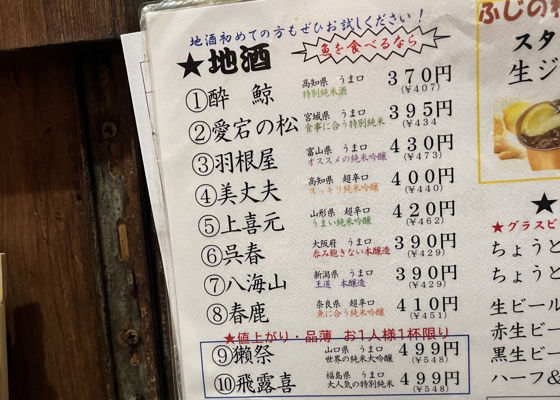 地酒初めての方もぜひお試しください！
★地酒
魚を食べるなら
①酔鯨 高知県 うま口 特別純米酒 370円 (¥407)
②愛宕の松 宮城県 うま口 食事に合う特別純米 395円 (¥434
③羽根屋 富山県 うま口 オススメの純米吟醸 430円 (¥473)
④美丈夫 高知県 超辛口 スッキリ純米吟醸 400円 (¥440)
⑤上喜元 山形県 超辛口 うまい純米吟醸 420円 (¥462)
⑥呉春 大阪府 うま口 呑み飽きない本醸造 390円 (¥429)
⑦八海山 新潟県 うま口 王道 本醸造 390円 (¥429)
⑧春鹿 奈良県 超辛口 魚に合う純米吟醸 410円 (¥451)
★値上がり・品薄 お1人様1杯限り
⑨獺祭 山口県 うま口 世界の純米大吟醸 499円 (¥548)
⑩飛露喜 福島県 うま口 大人気の特別純米 499円 (¥548)
ふじの
スタ
生ジ
★
★グラスビ
ちょうど
ちょうと
生ビール
赤生ビー
黒生ビー
ハーフ&